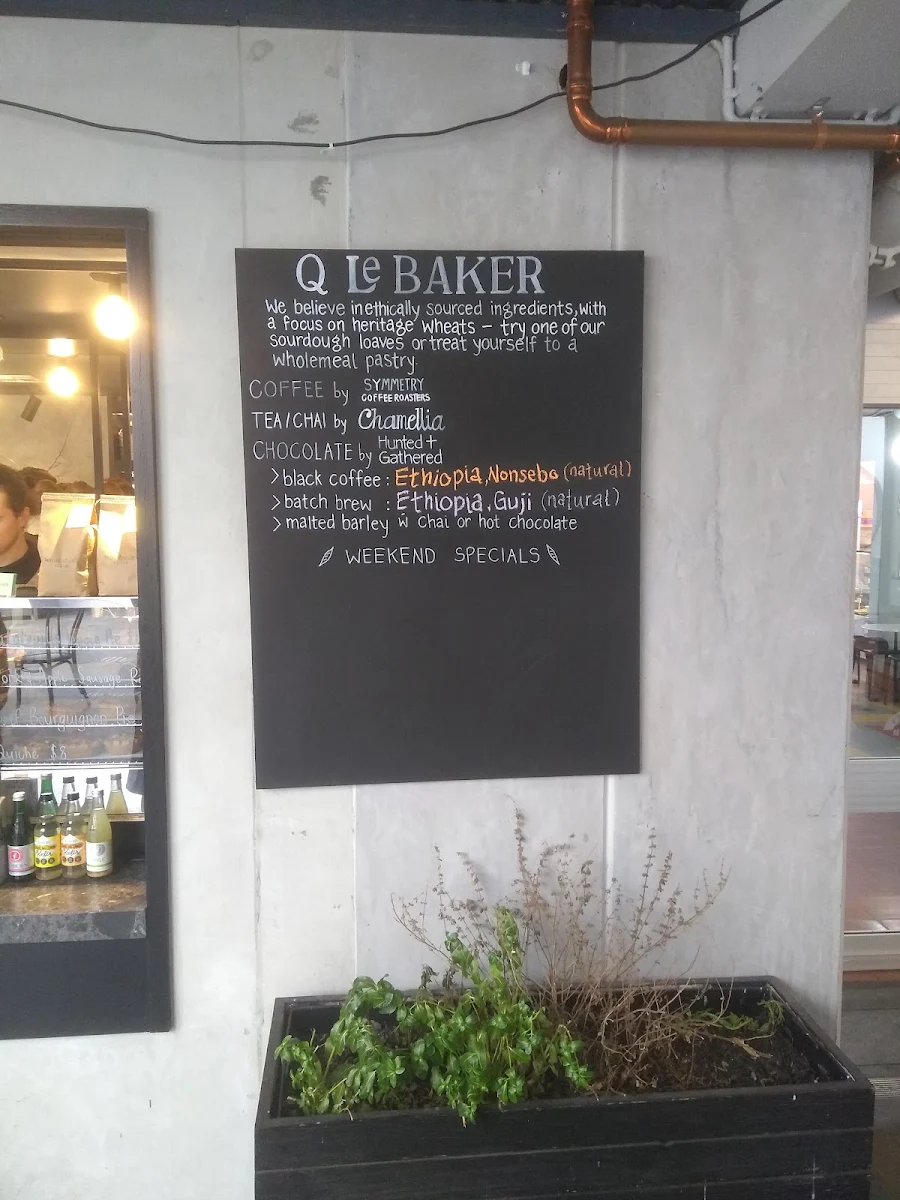 Q Le BAKER
We believe in ethically sourced ingredients, with
a focus on heritage wheats – try one of our
sourdough loaves or treat yourself to a
wholemeal pastry.
COFFEE by SYMMETRY COFFEE ROASTERS
TEA/CHAI by Chamellia
CHOCOLATE by Hunted + Gathered
>black coffee : Ethiopia, Nonsebo (natural)
>batch brew : Ethiopia, Guji (natural)
>malted barley w̄ chai or hot chocolate
WEEKEND SPECIALS
Bourguignon
quiche $8